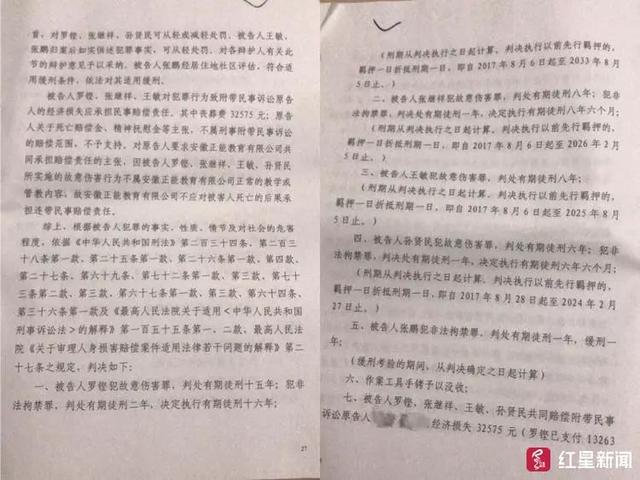 首，对罗铿、张继祥、孙贤民可从轻或减轻处罚。被告人王敏、
张鹏归案后如实供述犯罪事实，可从轻处罚。对各辩护人有关此
节的辩护意见予以采纳。被告人张鹏经居住地社区评估，符合适
用缓刑条件，依法对其适用缓刑。
被告人罗铿、张继祥、王敏对犯罪行为致附带民事诉讼原告
人的经济损失应承担民事赔偿责任。其中丧葬费 32575 元；原告
人关于死亡赔偿金、精神抚慰金等主张，不属刑事附带民事诉讼
的赔偿范围，不予支持。对原告人要求安徽正能教育有限公司共
同承担赔偿责任的主张，因被告人罗铿、张继祥、王敏、孙贤民
所实施的故意伤害行为不属安徽正能教育有限公司正常的教学或
管教内容，故安徽正能教育有限公司不应对被害人死亡的后果承
担连带民事赔偿责任。
综上，根据被告人犯罪的事实、性质、情节及对社会的危害
程度，依据《中华人民共和国刑法》第二百三十四条、第二百三
十八条第一款、第二十五条第一款、第二十六条第一款、第四款、
第二十七条、第六十九条、第七十二条第一款、第三款、第七十三
条第二款、第三款、第六十七条第一款、第三款、第六十四条、
第三十六条第一款及《最高人民法院关于适用<中华人民共和国
刑事诉讼法>的解释》第一百五十五条第一、二款、最高人民法
院《关于审理人身损害赔偿案件适用法律若干问题的解释》第二
十七条之规定，判决如下：
一、被告人罗铿犯故意伤害罪，判处有期徒刑十五年；犯非
法拘禁罪，判处有期徒刑二年，决定执行有期徒刑十六年；
27
（刑期从判决执行之日起计算。判决执行以前先行羁押的，
羁押一日折抵刑期一日，即自 2017 年 8 月 6 日起至 2033 年 8 月
5 日止。）
二、被告人张继祥犯故意伤害罪，判处有期徒刑八年；犯非
法拘禁罪，判处有期徒刑一年，决定执行有期徒刑八年六个月；
（刑期从判决执行之日起计算。判决执行以前先行羁押的，
羁押一日折抵刑期一日，即自 2017 年 8 月 6 日起至 2026 年 2 月
5 日止。）
三、被告人王敏犯故意伤害罪，判处有期徒刑八年；
（刑期从判决执行之日起计算。判决执行以前先行羁押的，
羁押一日折抵刑期一日，即自 2017 年 8 月 6 日起至 2025 年 8 月
5 日止。）
四、被告人孙贤民犯故意伤害罪，判处有期徒刑六年；犯非
法拘禁罪，判处有期徒刑一年，决定执行有期徒刑六年六个月；
（刑期从判决执行之日起计算。判决执行以前先行羁押的，
羁押一日折抵刑期一日，即自 2017 年 8 月 28 日起至 2024 年 2 月
27 日止。）
五、被告人张鹏犯非法拘禁罪，判处有期徒刑一年，缓刑一
年；
（缓刑考验的期间，从判决确定之日起计算）
六、作案工具手铐予以没收；
七、被告人罗铿、张继祥、王敏、孙贤民共同赔偿附带民事
诉讼原告人 经济损失 32575 元（罗铿已支付 13263
红星新闻